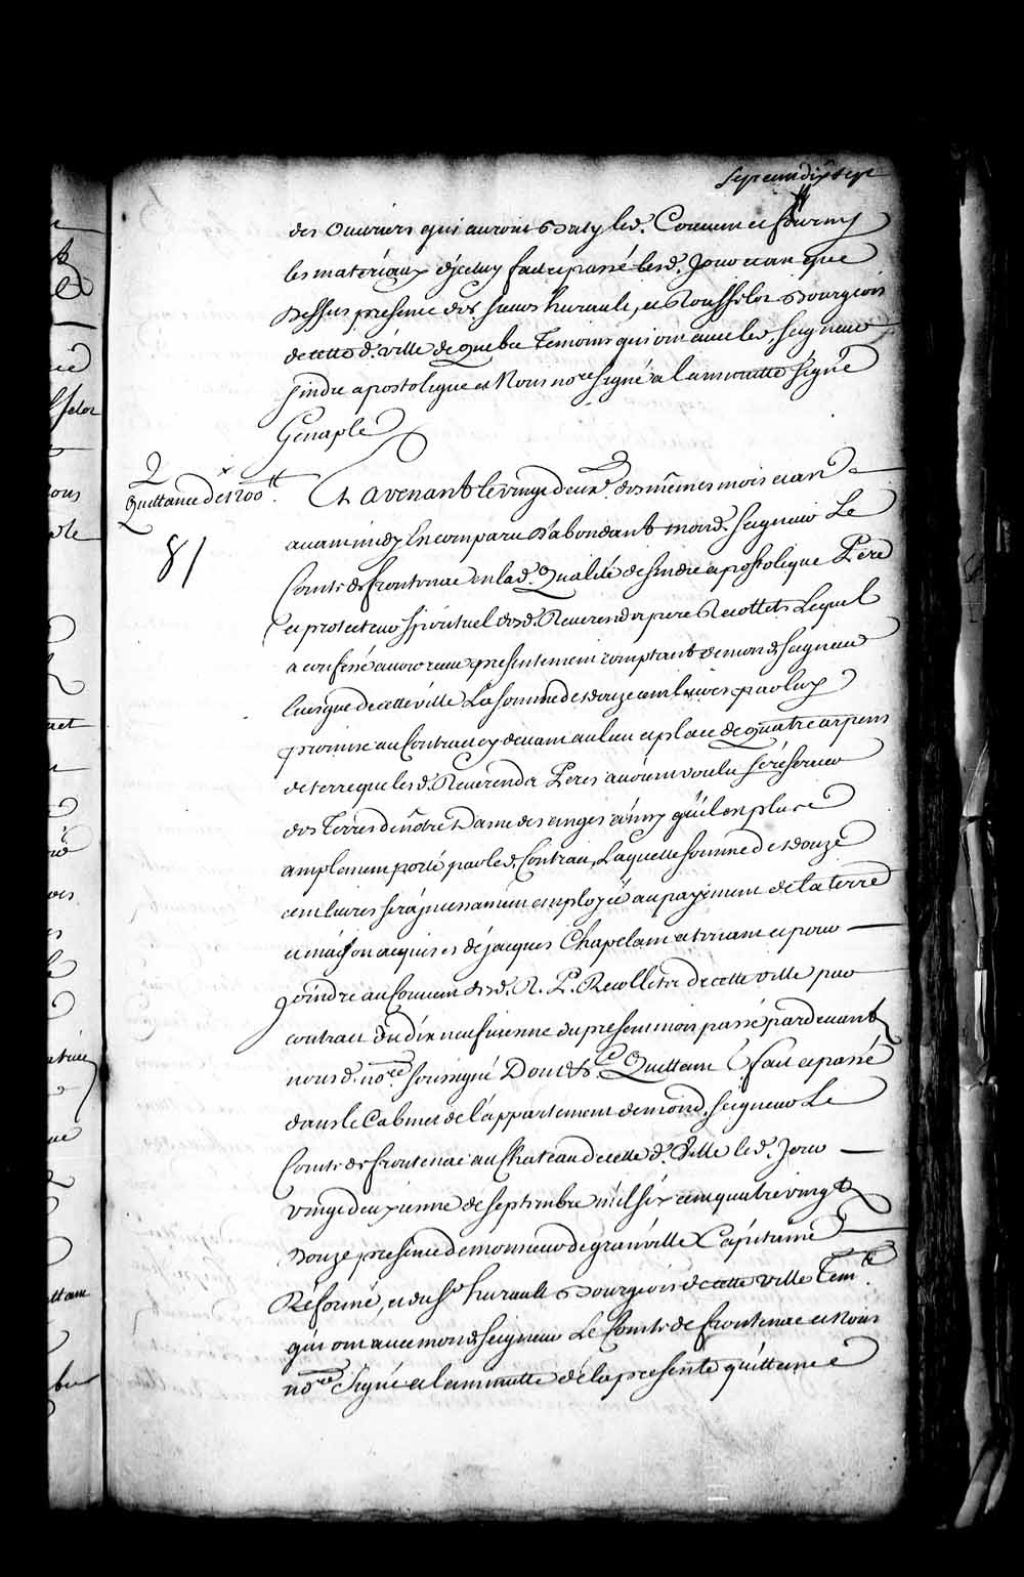 Sept cent dix sept
des Ouuriers qui auront Basty led. Couuent et fourny
les materiaux d'jceluy fait et passé lesd. Jour et an que
Dessus presence des Sieurs hurault, et Rousselot Bourgeois
de cette d. ville de Quebec Temoins qui ont auec led. Seigneur
sindic apostolique et Nous nore signé a la minutte signé
Genaple
Quittance de 1200 tt
81
Et avenant le vingt deux e. des mêmes mois et an
auant midy En comparu D'abondant mond. Seigneur Le
Comte de frontenac en lad. Qualité de sindic apostolique Pere
et protecteur spirituel desd. Reuerends peres Recollets Lequel
a confessé auoir receu presentement comptant de mond Seigneur
Euesque de cette ville La somme de douze cent liures par luy
promise au Contract cy deuant au lieu et place de quatre arpens
de terre que lesd. Reuerends Peres auoient voulu se réseruer
des Terres de nôtre Dame des anges ainsy qu'il est plus
amplement porté par led. Contrat, Laquelle somme de douze
cent liures sera jncessament employée au payement de la terre
et maison acquises de jacques Chapelain attenant et pour
joindre au Couuent desd. R. P. Recollets de cette ville par
contrat du dix neufuienne du present mois passé pardeuant
nous d. nore soussigné Dont &c Quittant &c fait et passé
dans le Cabinet de l'appartement de mond. Seigneur Le
Comte de frontenac au Chateau de cette d. Ville led. Jour
vingt deuxienne de septembre mil six cent quatre vingt
Douze presence de monsieur de granville Capitaine
Réformé, et du Sr hurault Bourgeois de cette ville Tem.
qui ont auec mond Seigneur Le Comte de frontenac et Nous
nore Signé a la minutte de la presente quittance